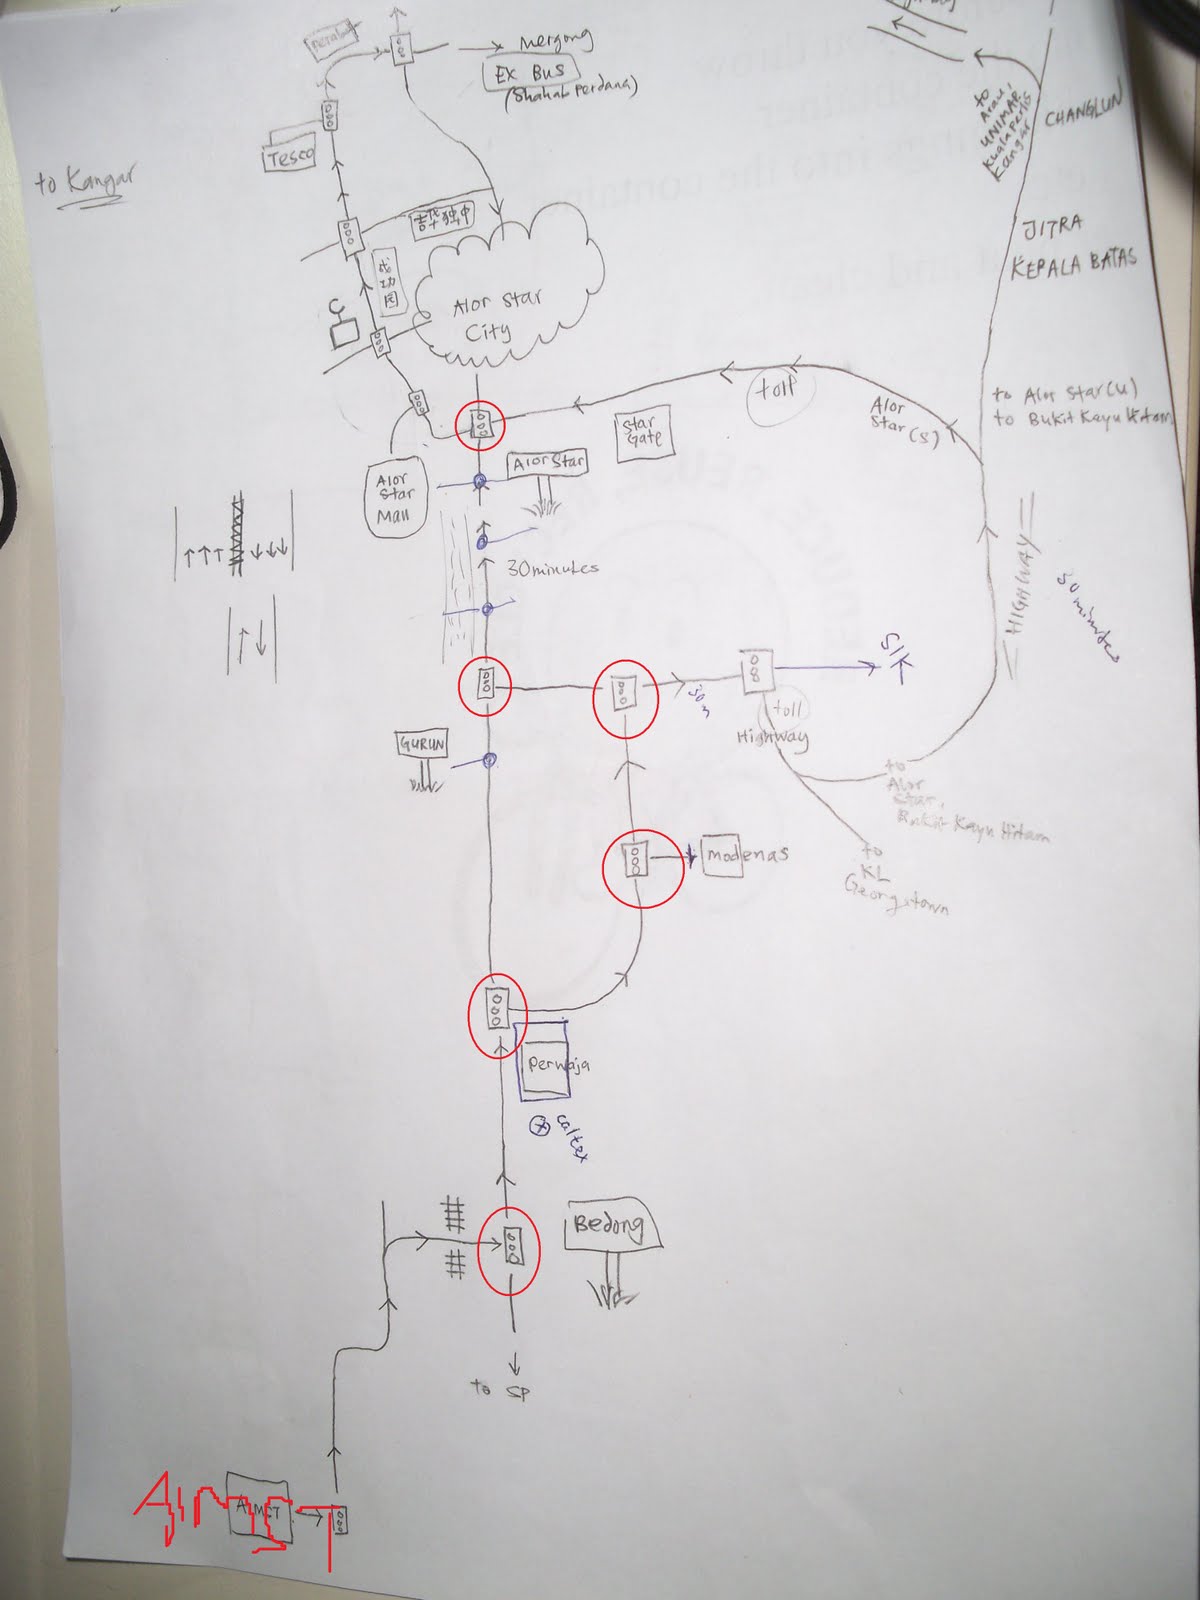 mergong
EX BUS
(Shahab Perdana)
Tesco
to Kangar
to
Arau,
UNIMAP,
Kuala Perlis
Kangar
CHANGLUN
JITRA
KEPALA BATAS
成功
Alor Star
City
toll
Star
Gate
Alor
Star(S)
to Alor Star(U)
to Bukit Kayu Hitam
Alor Star
Alor
Star
Mall
30 minutes
HIGHWAY
50 minutes
SIK
50m
toll
Highway
GURUN
to
Alor
Star,
Bukit Kayu Hitam
to
KL
Georgetown
Modenas
Perwaja
caltex
Bedong
to SP
AIMST
AIMST